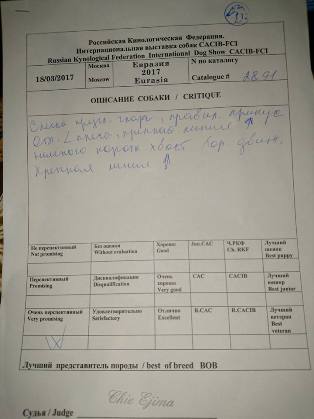 Российская Кинологическая Федерация.
Интернациональная выставка собак CACIB-FCI
Russian Kynological Federation International Dog Show CACIB-FCI
18/03/2017
Москва
Moscow
Евразия
2017
Eurasia
N по каталогу
Catalogue # 2891
ОПИСАНИЕ СОБАКИ / CRITIQUE
прикус
крепкая линия
немного коротк хвост
крепкая линия
Не перспективный
Not promising
Без оценки
Without evaluation
Хорошо
Good
Jun.CAC
Ч.РКФ
Ch. RKF
Лучший
щенок
Best puppy
Перспективный
Promising
Дисквалификация
Disqualification
Очень
хорошо
Very good
CAC
CACIB
Лучший
юниор
Best junior
Очень перспективный
Very promising
Удовлетворительно
Satisfactory
Отлично
Excellent
R.CAC
R.CACIB
Лучший
ветеран
Best
veteran
Лучший представитель породы / best of breed BOB
Судья / Judge
Chie Ejima